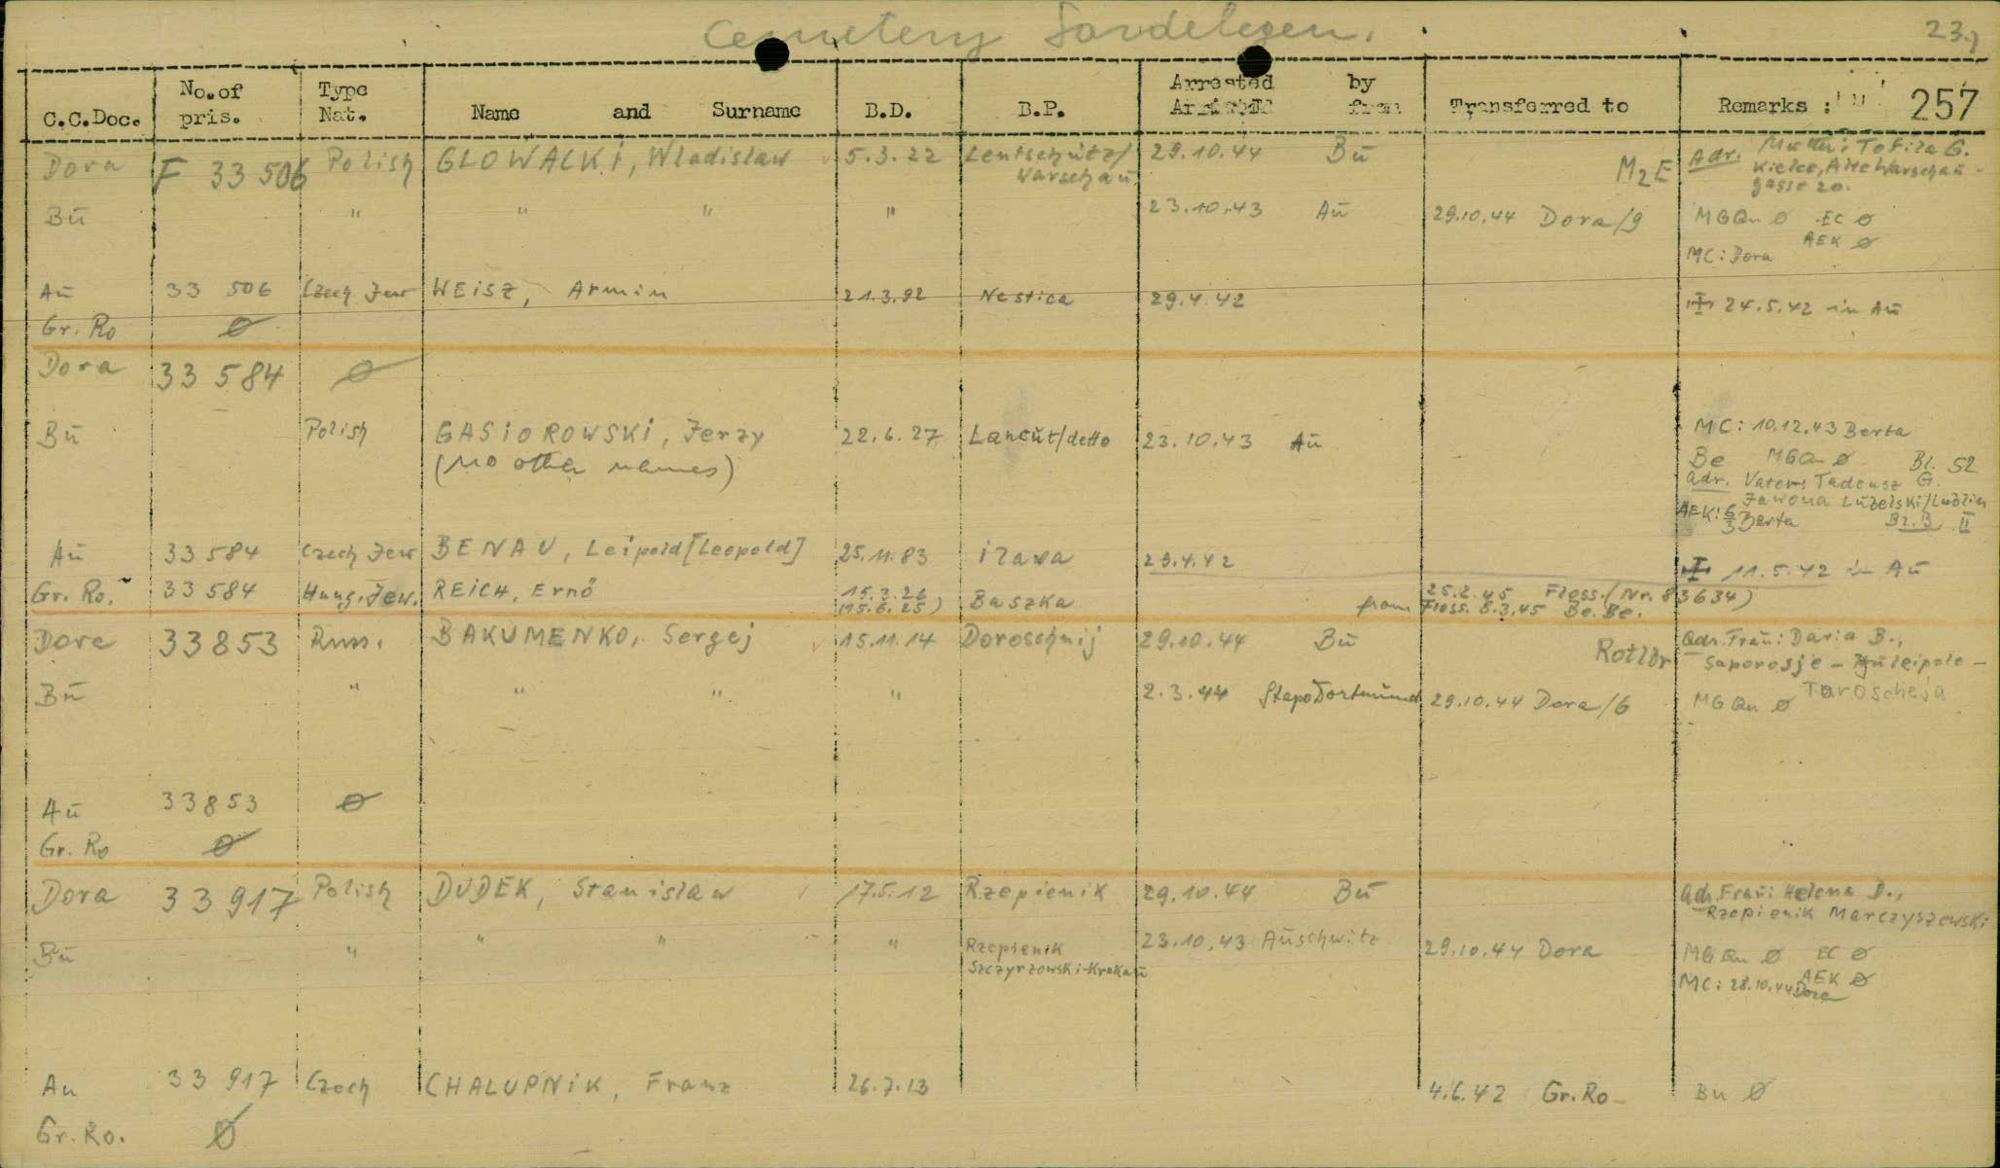 Cemetery Gardelegen.
23.)
C.C.Doc. No. of pris. Type Nat. Name and Surname B.D. B.P. Arrested by from Transferred to Remarks : 257
Dora F 33 506 Polish GLOWALKI, Wladislaw 5.3.22 Lentschütz/ 29.10.44 Bū M2E Adr. Mutter: Tofila G.
Warschau Kielce, Alte Warschau-
gasse 20.
Bū " " " " 23.10.43 Aū 29.10.44 Dora/9 MGQu ø EC ø
AEK ø
MC: Dora
Aū 33 506 Czech Jew WEISZ, Armin 21.3.92 Nestica 29.4.42 24.5.42 in Aū
Gr. Ro ø
Dora 33 584 ø
Bū Polish GASIOROWSKI, Jerzy 22.6.27 Lancūt/detto 23.10.43 Aū MC: 10.12.43 Berta
(no other names) Be MGQu ø Bl. 52
Adr. Vaters Tadeusz G.
Jawona Lūbelski/Lublin
AEK: 6/3 Berta Bl.B. II
Aū 33 584 Czech Jew BENAU, Leipold [Leopold] 25.11.83 ilava 29.4.42 11.5.42 in Aū
Gr. Ro. 33 584 Hung. Jew. REICH, Ernő 15.3.26 Baszka 25.2.45 Floss. (Nr. 83634)
(15.6.25) from Floss. 8.3.45 Be.Be.
Dora 33853 Russ. BAKUMENKO, Sergej 15.11.14 Doroschnij 29.10.44 Bū Rotlbr Adr. Fraū: Daria B.,
Saporosje - Gūleipole -
Taroscheja
Bū " " " " 2.3.44 Stapo Dortmund 29.10.44 Dora/6 MGQu ø
Aū 33853 ø
Gr. Ro ø
Dora 33 917 Polish DUDEK, Stanislaw 17.5.12 Rzepienik 29.10.44 Bū Adr. Fraū: Helena D.,
Rzepienik Marczyszewski
Bū " " " " Rzepienik 23.10.43 Aūschwitz 29.10.44 Dora MGQu ø EC ø
Szczyrzowski-Krakaū AEK ø
MC: 28.10.44 Dora
Au 33 917 Czech CHALUPNIK, Franz 26.7.13 4.6.42 Gr.Ro Bu ø
Gr. Ro. ø